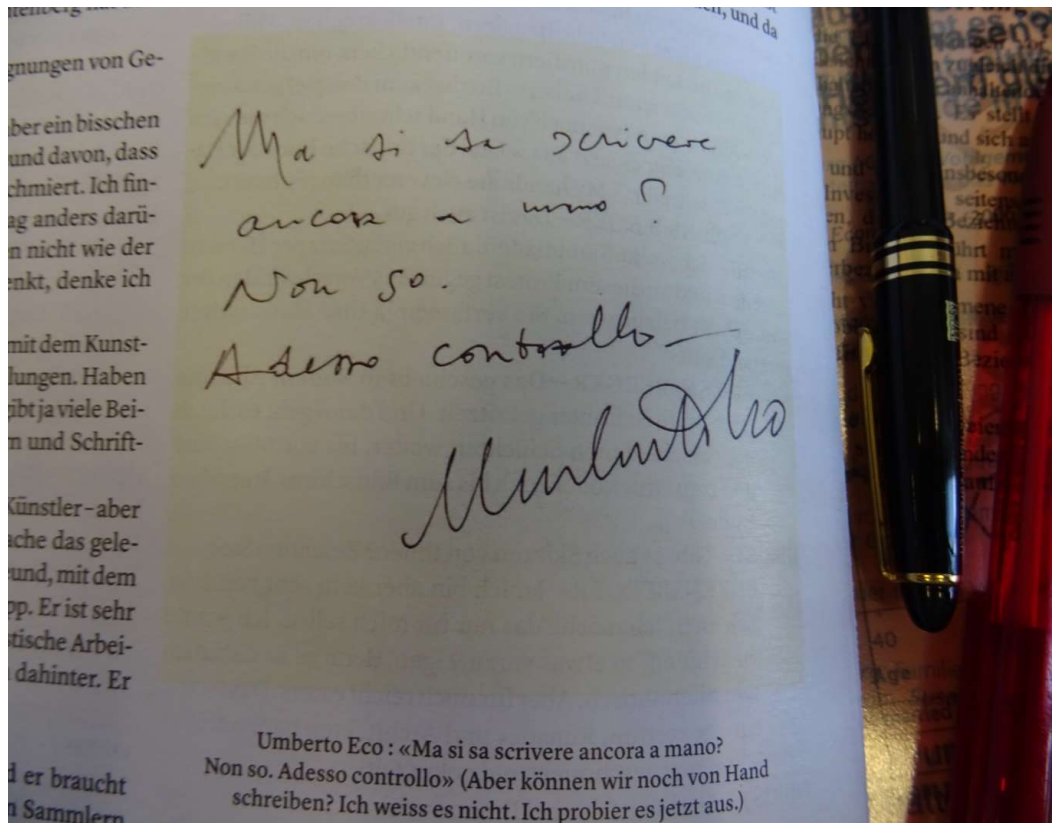 und da
gnungen von Ge-
ber ein bisschen
und davon, dass
chmiert. Ich fin-
ag anders darü-
n nicht wie der
enkt, denke ich
mit dem Kunst-
lungen. Haben
gibt ja viele Bei-
n und Schrift-
Künstler – aber
ache das gele-
eund, mit dem
op. Er ist sehr
stische Arbei-
dahinter. Er
d er braucht
n Sammlern
Ma si sa scrivere
ancora a mano?
Non so.
Adesso controllo
Umberto Eco
Umberto Eco : «Ma si sa scrivere ancora a mano?
Non so. Adesso controllo» (Aber können wir noch von Hand
schreiben? Ich weiss es nicht. Ich probier es jetzt aus.)
40